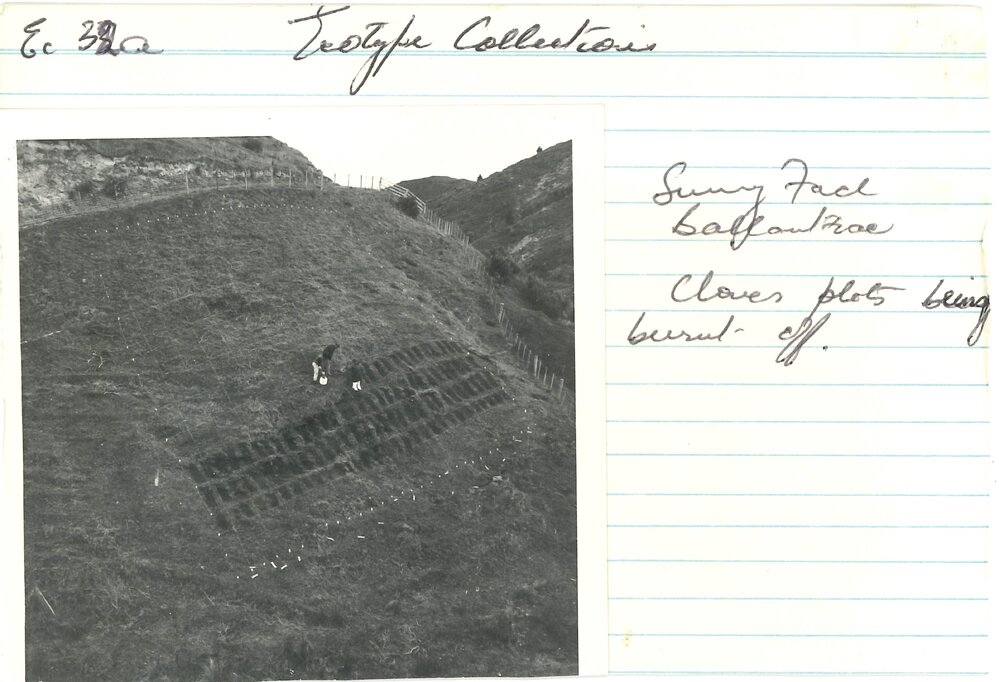 Ec 32a Ecotype Collections
Sunny Face
Ballantrae
Clover plots being
burnt off.